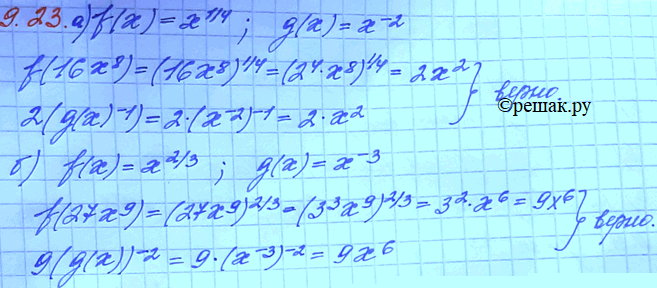 9.23. а) f(x) = x^{1/4} ; g(x) = x^{-2}
f(16x^8) = (16x^8)^{1/4} = (2^4·x^8)^{1/4} = 2x^2 } верно
2(g(x)^{-1}) = 2·(x^{-2})^{-1} = 2·x^2
©решак.ру
б) f(x) = x^{2/3} ; g(x) = x^{-3}
f(27x^9) = (27x^9)^{2/3} = (3^3x^9)^{2/3} = 3^2·x^6 = 9x^6 } верно.
9(g(x))^{-2} = 9·(x^{-3})^{-2} = 9x^6